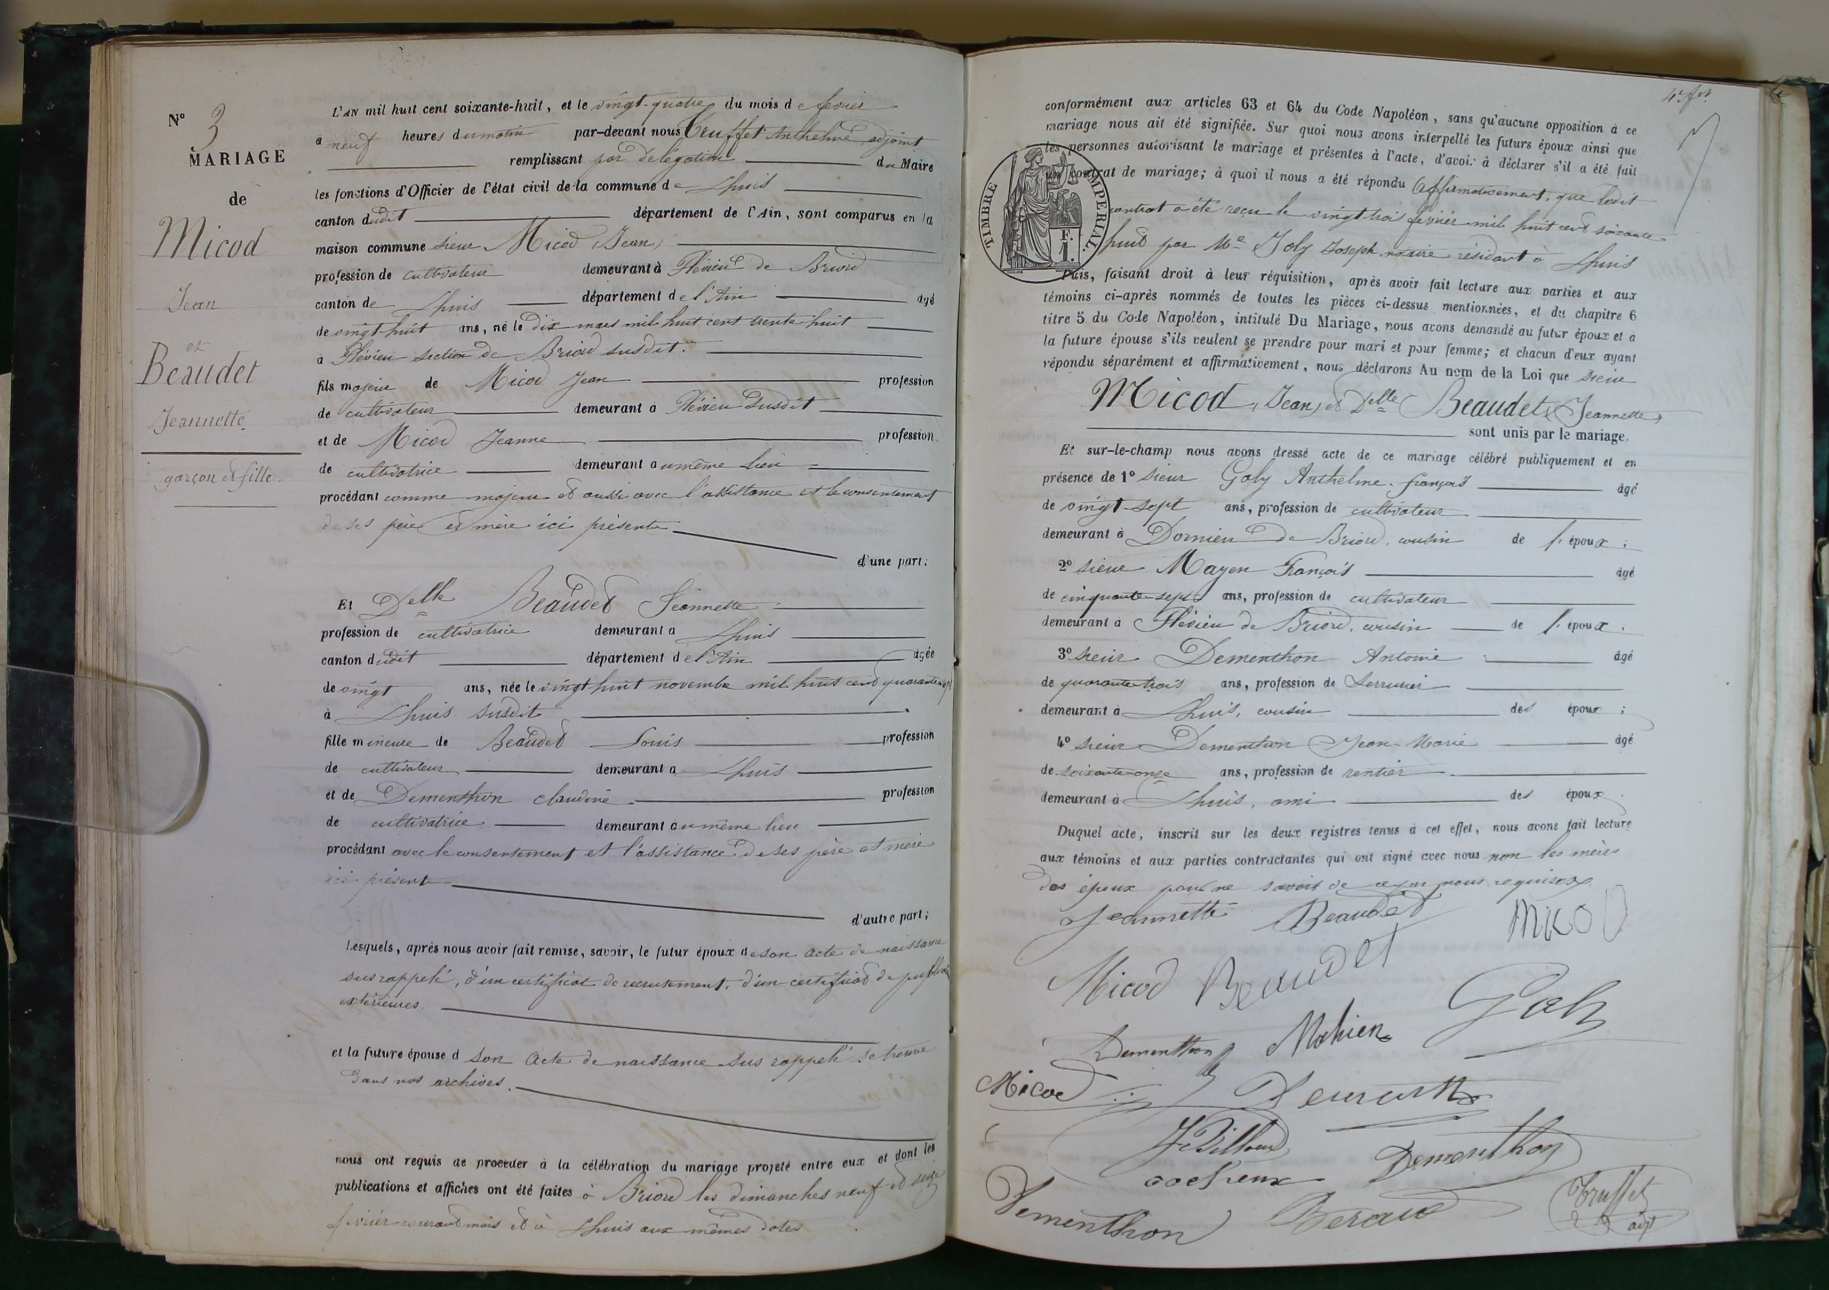 N° 3
MARIAGE
de
Micod
Jean
et
Beaudet
Jeannette
garçon et fille.
L'AN mil huit cent soixante-huit, et le vingt-quatre du mois de fevrier
a neuf heures du matin par-devant nous Truffet Anthelme adjoint
remplissant par delegation du Maire
les fonctions d'Officier de l'état civil de la commune de Lhuis
canton dudit département de l'Ain, sont comparus en la
maison commune sieur Micod Jean,
profession de cultivateur demeurant à Flévieu de Briord
canton de Lhuis département de l'Ain agé
de vingt huit ans, né le dix mars mil huit cent trente huit
a Flévieu section de Briord susdit.
fils majeur de Micod Jean profession
de cultivateur demeurant a Flévieu susdit
et de Micod Jeanne profession
de cultivatrice demeurant au même lieu
procédant comme majeur et aussi avec l'assistance et le consentement
de ses père et mère ici présents
d'une part;
Et Delle Beaudet Jeannette
profession de cultivatrice demeurant a Lhuis
canton dudit département de l'Ain agée
de vingt ans, née le vingt huit novembre mil huit cent quarante sept
à Lhuis susdit
fille mineure de Beaudet Louis profession
de cultivateur demeurant a Lhuis
et de Dementhon claudine profession
de cultivatrice demeurant au même lieu
procédant avec le consentement et l'assistance de ses père et mère
ici présents
d'autre part;
Lesquels, après nous avoir fait remise, savoir, le futur époux de son acte de naissance
sus rappelé, d'un certificat de recrutement, d'un certificat de publications
extérieures.
et la future épouse d son acte de naissance sus rappelé se trouve
dans nos archives.
nous ont requis de proceder à la célébration du mariage projeté entre eux et dont les
publications et affiches ont été faites à Briord les dimanches neuf et seize
février courant mois et à Lhuis aux mêmes dates
conformément aux articles 63 et 64 du Code Napoléon, sans qu'aucune opposition à ce
mariage nous ait été signifiée. Sur quoi nous avons interpellé les futurs époux ainsi que
les personnes autorisant le mariage et présentes à l'acte, d'avoir à déclarer s'il a été fait
contrat de mariage; à quoi il nous a été répondu affirmativement, que ledit
contrat a été reçu le vingt trois février mil huit cent soixante
huit par Me Joly Joseph notaire résidant à Lhuis
TIMBRE IMPERIAL.
F.
1.
Puis, faisant droit à leur réquisition, après avoir fait lecture aux parties et aux
témoins ci-après nommés de toutes les pièces ci-dessus mentionnées, et du chapitre 6
titre 5 du Code Napoléon, intitulé Du Mariage, nous avons demandé au futur époux et a
la future épouse s'ils veulent se prendre pour mari et pour femme; et chacun d'eux ayant
répondu séparément et affirmativement, nous déclarons Au nom de la Loi que sieur
Micod, Jean, et Delle Beaudet, Jeannette,
sont unis par le mariage.
Et sur-le-champ nous avons dressé acte de ce mariage célébré publiquement et en
présence de 1° sieur Galy Anthelme françois agé
de vingt-sept ans, profession de cultivateur
demeurant à Dornieu de Briord, cousin de l'époux;
2° sieur Mayen François agé
de cinquante-sept ans, profession de cultivateur
demeurant à Flévieu de Briord, cousin de l'époux.
3° sieur Dementhon Antoine agé
de quarante trois ans, profession de serrurier
demeurant à Lhuis, cousin des époux;
4° sieur Dementhon Jean-Marie agé
de soixante onze ans, profession de rentier
demeurant à Lhuis, ami des époux.
Duquel acte, inscrit sur les deux registres tenus à cet effet, nous avons fait lecture
aux témoins et aux parties contractantes qui ont signé avec nous non les mères
des époux pour ne savoir de ce par nous requises.
Jeannette Beaudet Micod
Micod Beaudet
Dementhon Galy
Micod
Dementhon
Dementhon
Truffet
adjt